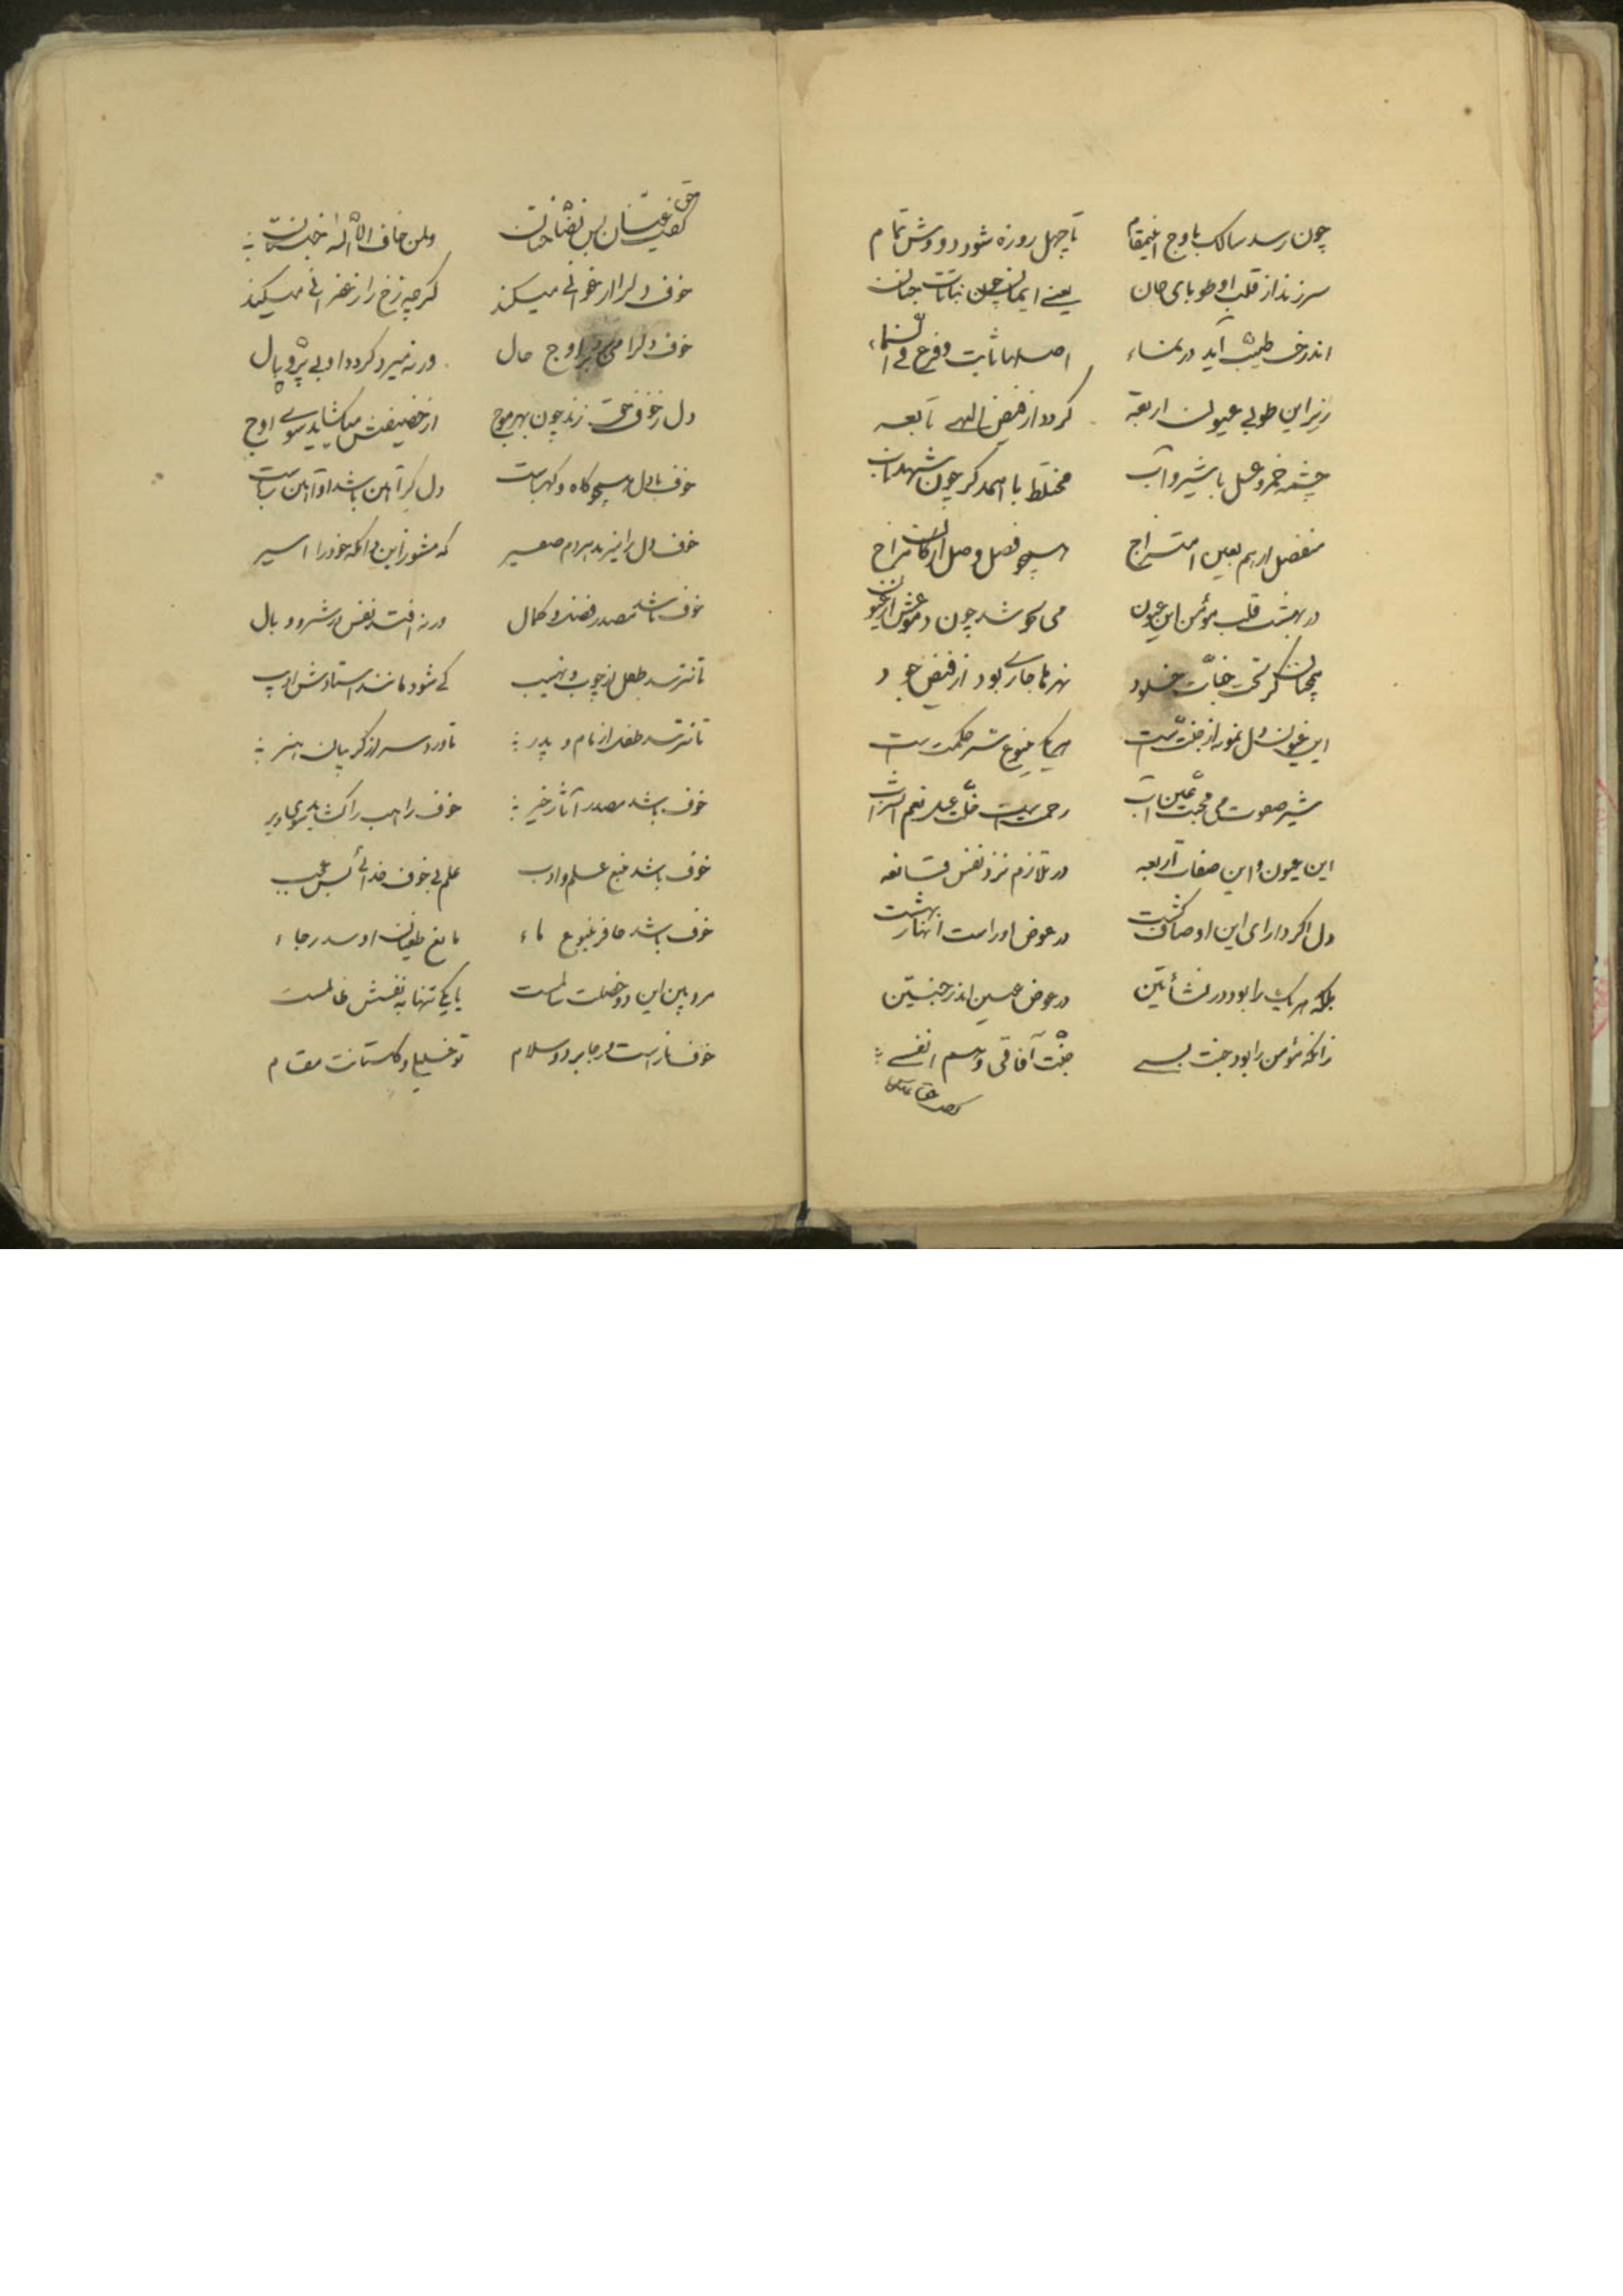 چون رسد سالک باوج اینمقام تا چهل روزه شود دو وش تمام
سرزند از قلب او طوبای جان یعنے ایمان چون نباتات جنان
اندرخت طیبش آید در نماء اصلها ثابت و فرع فے السماء
زیر این طوبی عیون اربعه کردد از فیض الهے تابعه
چشمه خمر و عسل با شیر و آب مختلط با همدکر چون شهد ناب
منفصل از هم بعین امتزاج همچو فصل و وصل ارکان مزاج
در بهشت قلب مؤمن این عیون می بجوشد چون دموعش از عیون
همچنان کز تحت جنّات خلود نهرها جاری بود از فیض جود
این عیون دل نمونه از جنّت است هر یکی ینبوع سرّ حکمت است
شیر صفوت می محبت عین آب رحمت است خلّت عسل نعم الشراب
این عیون و این صفات اربعه در تلازم نزد نفس قانعه
دل اکر دارای این اوصاف کشت در عوض او راست انهار بهشت
بلکه هر یک را بود در نشأتین در عوض عین اندر جنّتین
زانکه مؤمن را بود جنت بسے جنّت آفاقی و هم انفسے
حق
کفت عینان بس نضّاختان ولمن خاف الاله جنّتان
خوف دلرا ارغوانے میکند کرچه رخ را زعفرانے میکند
خوف دلرا می برد بر اوج حال ورنه میرد کردد او بے پرّ و بال
دل ز خوف حق زند چون بهر موج از حضیضش میکشاید سوے اوج
خوف با دل همچو کاه و کهرباست دل کر آهن باشد او آهن رباست
خوف دل را میزند هر دم صفیر که مشو زاین دامکه خود را اسیر
خوف باشد مصدر فضل و کمال ورنه افتد نفس در شر و وبال
تا نترسد طفل از چوب و نهیب کے شود مانند استادش ادیب
تا نترسد طفل از مام و پدر ناورد سر از کریبان هنر
خوف باشد مصدر آثار خیر خوف راهب را کشاند سوی دیر
خوف باشد منبع علم و ادب علم بی خوف خدائے بس عجب
خوف باشد حافر ینبوع ماء مانع طغیان او سد رجاء
مرد بین این دو خصلت سالمست با یکے تنها به نفسش ظالمست
خوف نار است و رجا برد و سلام تو خلیلے و کلستانت مقام